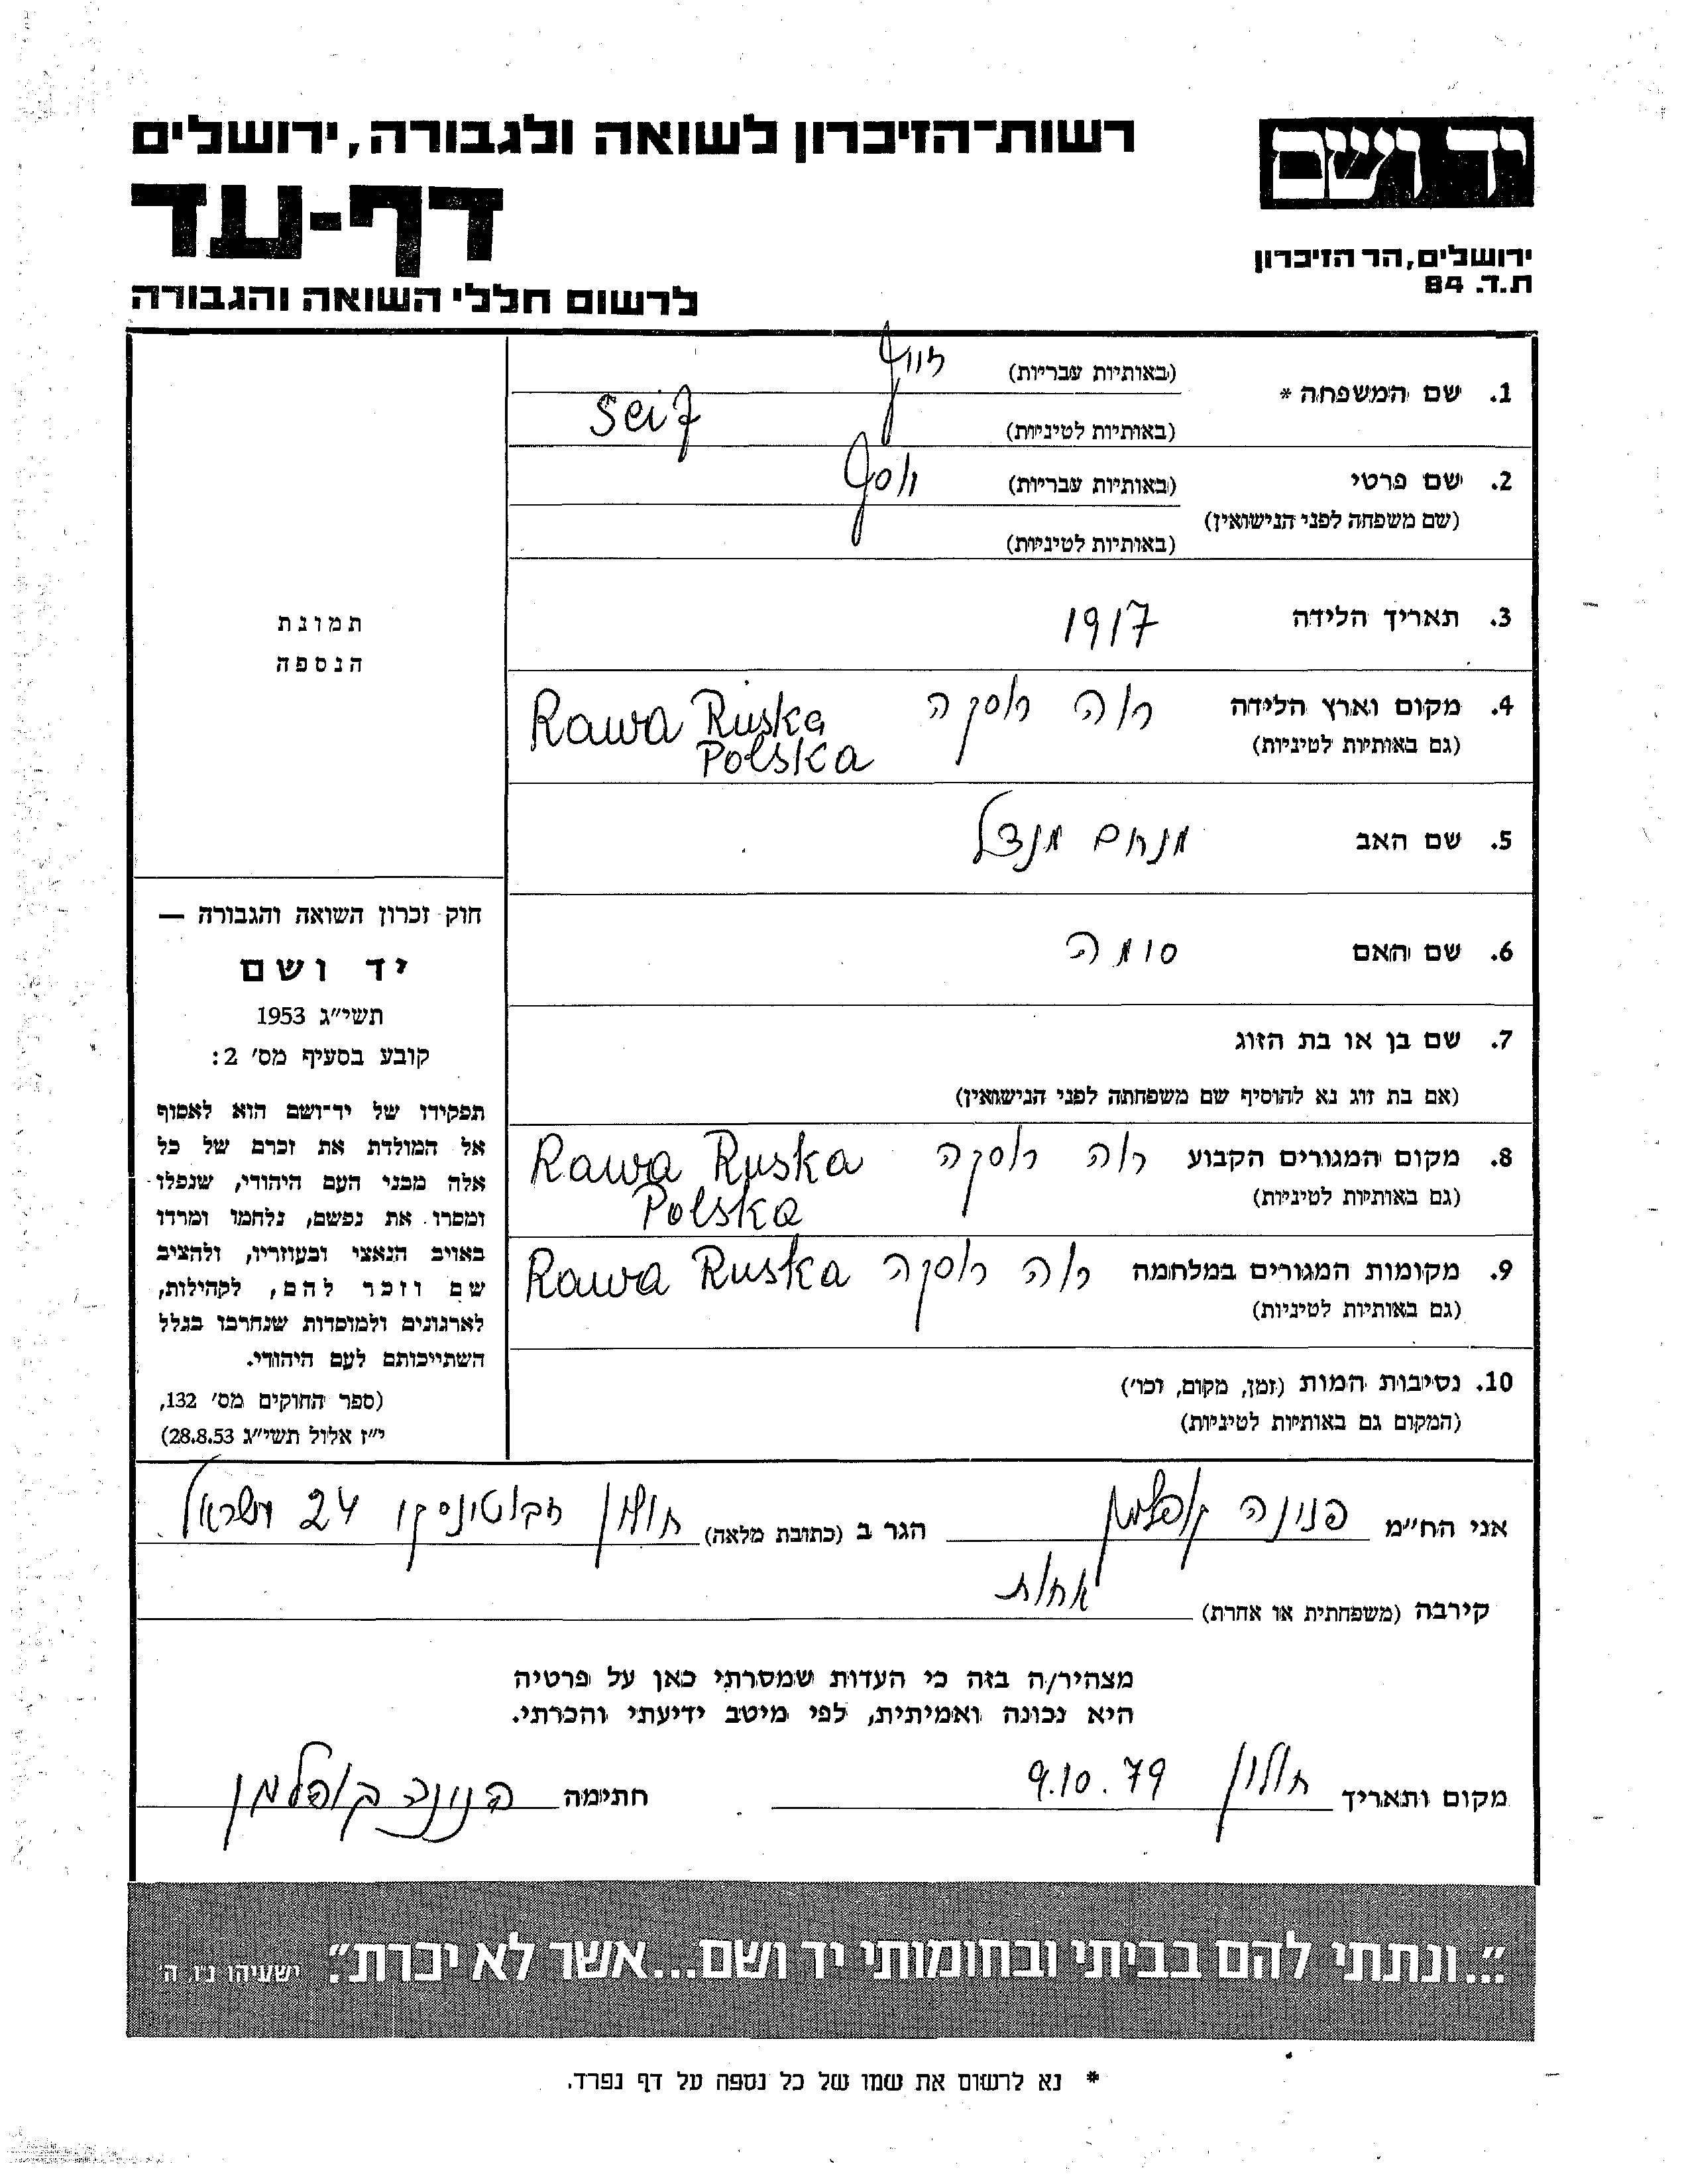 רשות־הזיכרון לשואה ולגבורה, ירושלים
דף-עד
לרשום חללי השואה והגבורה
יד ושם
ירושלים, הר הזיכרון
ת.ד. 84
1. שם המשפחה *
(באותיות עבריות)
(באותיות לטיניות) Seif
2. שם פרטי
(שם משפחה לפני הנישואין)
(באותיות עבריות) יוסף
(באותיות לטיניות)
3. תאריך הלידה 1917
4. מקום וארץ הלידה רוה רוסקה Rawa Ruska
(גם באותיות לטיניות) Polska
5. שם האב מנחם מנדל
6. שם האם סומה
7. שם בן או בת הזוג
(אם בת זוג נא להוסיף שם משפחתה לפני הנישואין)
8. מקום המגורים הקבוע רוה רוסקה Rawa Ruska
(גם באותיות לטיניות) Polska
9. מקומות המגורים במלחמה רוה רוסקה Rawa Ruska
(גם באותיות לטיניות)
10. נסיבות המות (זמן, מקום, וכו')
(המקום גם באותיות לטיניות)
תמונת
הנספה
חוק זכרון השואה והגבורה —
יד ושם
תשי״ג 1953
קובע בסעיף מס' 2:
תפקידו של יד־ושם הוא לאסוף
אל המולדת את זכרם של כל
אלה מבני העם היהודי, שנפלו
ומסרו את נפשם, נלחמו ומרדו
באויב הנאצי ובעוזריו, ולהציב
שם וזכר להם, לקהילות,
לארגונים ולמוסדות שנחרבו בגלל
השתייכותם לעם היהודי.
(ספר החוקים מס' 132,
י״ז אלול תשי״ג 28.8.53)
אני הח״מ פנינה קופלמן הגר ב (כתובת מלאה) חולון ז'בוטינסקי 24 ישראל
קירבה (משפחתית או אחרת) אחות
מצהיר/ה בזה כי העדות שמסרתי כאן על פרטיה
היא נכונה ואמיתית, לפי מיטב ידיעתי והכרתי.
מקום ותאריך חולון 9.10.79 חתימה פנינה קופלמן
"...ונתתי להם בביתי ובחומותי יד ושם...אשר לא יכרת". ישעיהו נ"ו ה'
* נא לרשום את שמו של כל נספה על דף נפרד.